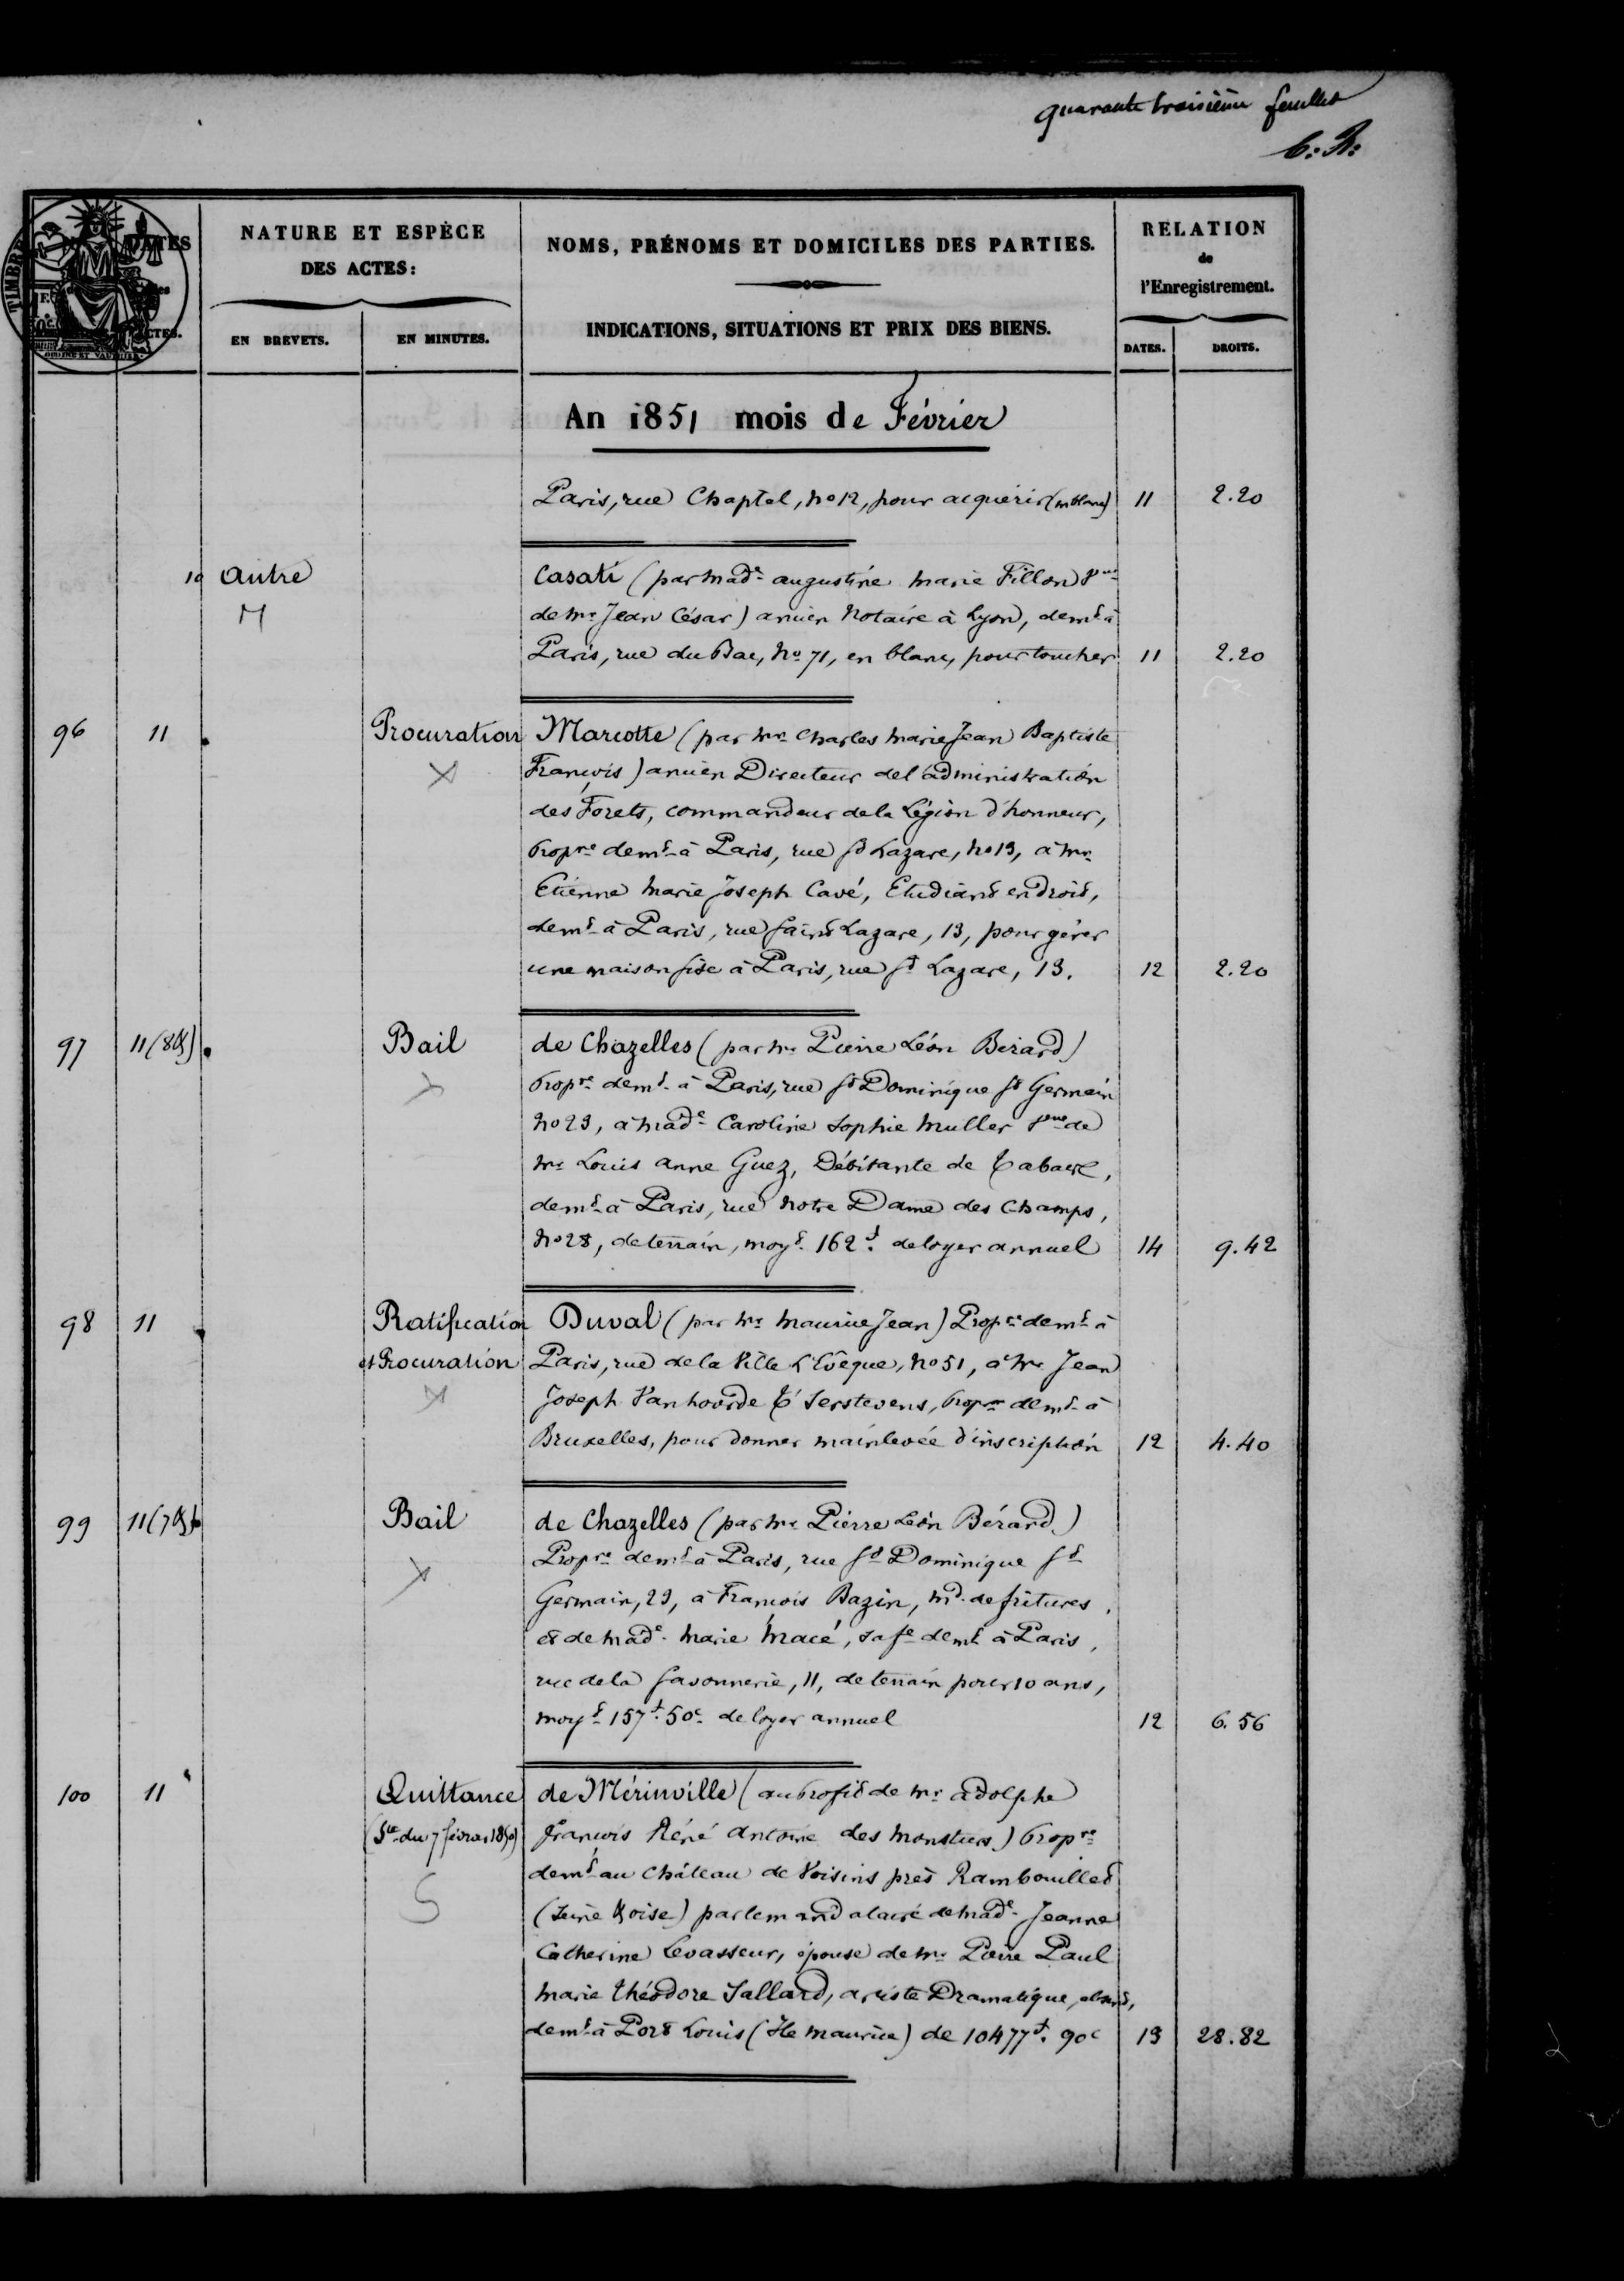 quarante troisième feuillet
C: R:
TIMBRE
DATES
NATURE ET ESPÈCE
DES ACTES:
NOMS, PRÉNOMS ET DOMICILES DES PARTIES.
RELATION
de
l'Enregistrement.
INDICATIONS, SITUATIONS ET PRIX DES BIENS.
EN BREVETS. EN MINUTES.
DATES. DROITS.
An 1851 mois de Février
Paris, rue Chaptal, no 12, pour acquérir (en blanc) 11 2.20
10 autre Casati (par made augustine Marie Fillon Vve
M de Mr Jean César) ancien Notaire à Lyon, demt à
Paris, rue du Bac, No 71, en blanc, pour toucher 11 2.20
96 11 Procuration Marcotte (par Mr Charles Marie Jean Baptiste
François) ancien Directeur de l'administration
des Forets, commandeur de la Légion d'honneur,
Propre demt à Paris, rue St Lazare, no 13, à Mr
Etienne Marie Joseph Cavé, Etudiant en Droit,
demt à Paris, rue Saint Lazare, 13, pour gérer
une maison sise à Paris, rue St Lazare, 13. 12 2.20
97 11 (8bre) Bail de Chazelles (par Mr Pierre Léon Bérard)
Propre demt à Paris, rue St Dominique St Germain
No 23, à Made Caroline Sophie Muller Vve de
Mr Louis Anne Guez, Débitante de Tabacs,
demt à Paris, rue Notre Dame des Champs,
No 28, de terrain, moyt 162f. de loyer annuel 14 9.42
98 11 Ratification Duval (par Mr Maurice Jean) Propre demt à
et Procuration Paris, rue de la Ville L'Evêque, No 51, à Mr Jean
Joseph Vanhoorde T'Serstevens, Propre demt à
Bruxelles, pour donner mainlevée d'inscription 12 4.40
99 11 (7bre) Bail de Chazelles (par Mr Pierre Léon Bérard)
Propre demt à Paris, rue St Dominique St
Germain, 23, à François Bazin, Md de fritures,
et de Made Marie Macé, sa fe demt à Paris,
rue de la Savonnerie, 11, de terrain pour 10 ans,
moyt 157f. 50c. de loyer annuel 12 6.56
100 11 Quittance de Mérinville (au Profit de Mr Adolphe
(Ste du 7 février 1850) François Réné Antoine des Monstiers) Propre
demt au Château de Voisins près Rambouillet
(Seine & oise) par le mandataire de Made Jeanne
Catherine Levasseur, épouse de Mr Pierre Paul
Marie Théodore Sallard, artiste Dramatique,
demt à Port Louis (Ile Maurice) de 10477f. 90c 13 28.82